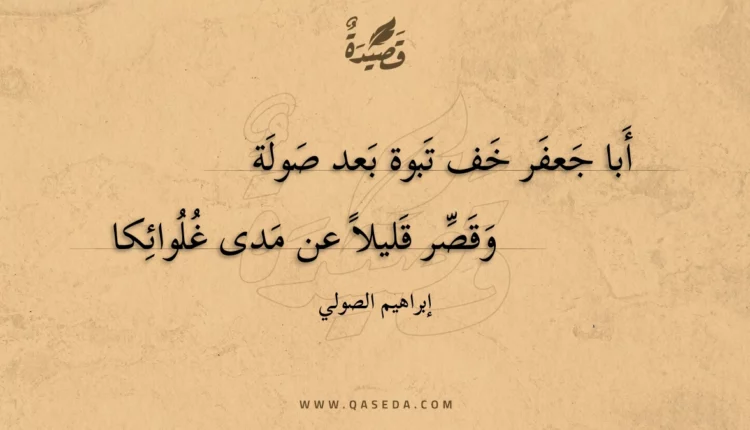 قَصِيْدَةٌ
أَبا جَعفَر خَف تَبوة بَعد صَولَة
وَقَصِّر قَليلاً عن مَدى غُلُوائِكا
إبراهيم الصولي
WWW.QASEDA.COM